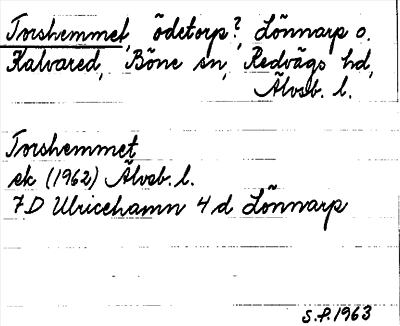 Torshemmet, ödetorp?, Lönnarp o.
Kalvared, Böne sn, Redvägs hd,
Älvsb. l.
Torshemmet
ek (1962) Älvsb. l.
7D Ulricehamn 4d Lönnarp
S.P. 1963